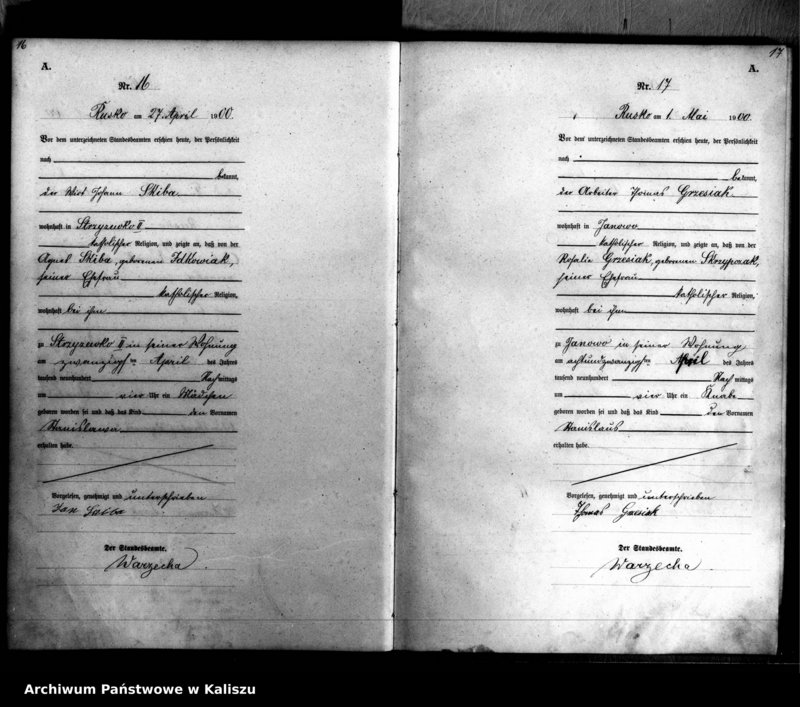 16
A.
Nr. 16
Rusko am 27. April 1900.
Vor dem unterzeichneten Standesbeamten erschien heute, der Persönlichkeit
nach
bekannt,
der Wirt Johann Skiba
wohnhaft in Strzyzewko II
katholischer Religion, und zeigte an, daß von der
Skiba, geborenen
seiner Ehefrau
katholischer Religion,
wohnhaft bei ihm
zu Strzyzewko II in seiner Wohnung
am zwanzigsten April des Jahres
tausend neunhundert Nachmittags
um vier Uhr ein Mädchen
geboren worden sei und daß das Kind den Vornamen
Stanislawa
erhalten habe.
Vorgelesen, genehmigt und unterschrieben
Jan
Der Standesbeamte.
Warzecha.
17
A.
Nr. 17
Rusko am 1. Mai 1900.
Vor dem unterzeichneten Standesbeamten erschien heute, der Persönlichkeit
nach
bekannt,
der Arbeiter Thomas Grzesiak
wohnhaft in Janowo
katholischer Religion, und zeigte an, daß von der
Rosalie Grzesiak, geborenen Skrzypczak,
seiner Ehefrau
katholischer Religion,
wohnhaft bei ihm
zu Janowo in seiner Wohnung
am achtundzwanzigsten April des Jahres
tausend neunhundert Nachmittags
um vier Uhr ein Knabe
geboren worden sei und daß das Kind den Vornamen
Stanislaus
erhalten habe.
Vorgelesen, genehmigt und unterschrieben
Thomas Gresiak
Der Standesbeamte.
Warzecha.
Archiwum Państwowe w Kaliszu